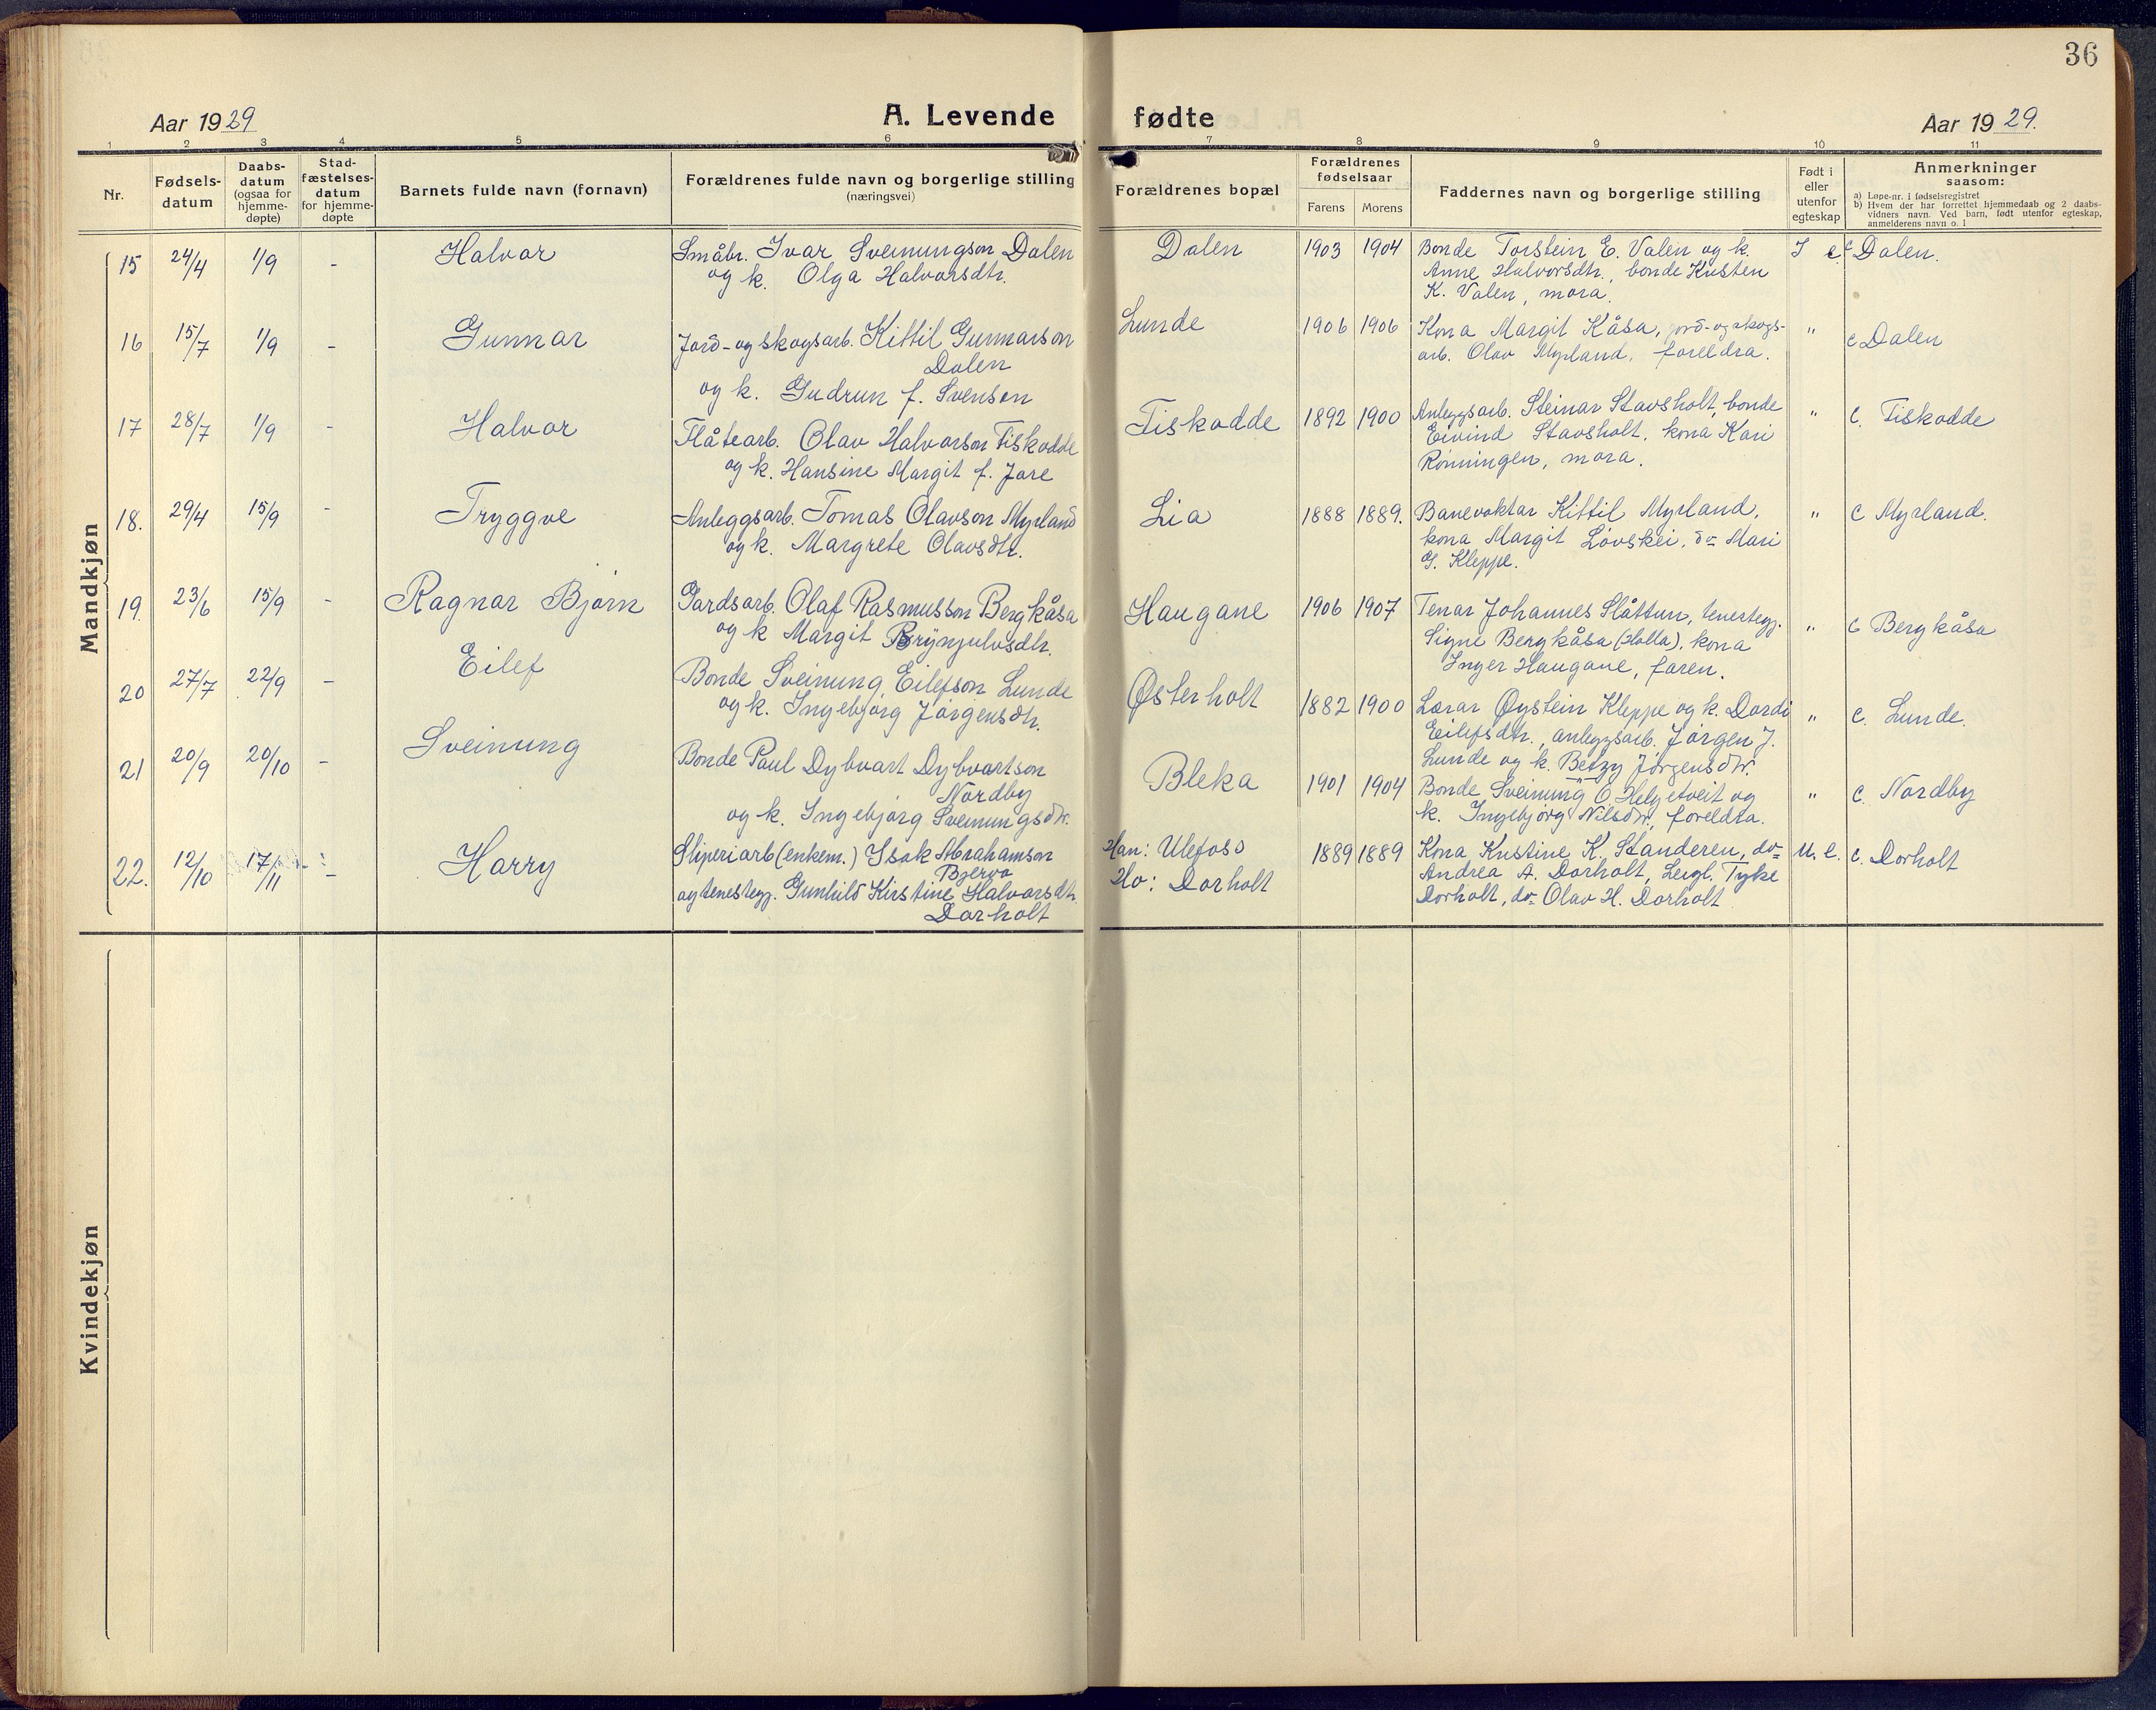 36
Aar 1929
A. Levende
fødte
Aar 1929.
1 2 3 4 5 6 7 8 9 10 11
Nr.
Fødsels-
datum
Daabs-
datum
(ogsaa for
hjemme-
døpte)
Stad-
fæstelses-
datum
for hjemme-
døpte
Barnets fulde navn (fornavn)
Forældrenes fulde navn og borgerlige stilling
(næringsvei)
Forældrenes bopæl
Forældrenes
fødselsaar
Farens Morens
Faddernes navn og borgerlige stilling
Født i
eller
utenfor
egteskap
Anmerkninger
saasom:
a) Løpe-nr. i fødselsregistret
b) Hvem der har forrettet hjemmedaab og 2 daabs-
vidners navn. Ved barn, født utenfor egteskap,
anmelderens navn o. l
Mandkjøn
15 24/4 1/9 - Halvor
Småbr. Ivar Sveinungson Dalen
og k. Olga Halvorsdtr.
Dalen 1903 1904
Bonde Torstein E. Valen og k.
Anne Halvorsdtr., bonde Kristen
K. Valen, mora.
I e. c Dalen.
16 15/7 1/9 - Gunnar
Jord- og skogsarb. Kittil Gunnarson
Dalen
og k. Gudrun f. Svensen
Lunde 1906 1906
Kona Margit Kåsa, jord- og skogs-
arb. Olav Myrland, foreldra.
" c Dalen
17 28/7 1/9 - Halvor
Flåtearb. Olav Halvorson Fiskodde
og k. Hansine Margit f. Jore
Fiskodde 1892 1900
Anleggsarb. Steinar Stavsholt, bonde
Eivind Stavsholt, kona Kari
Rønningen, mora.
" c. Fiskodde
18. 29/4 15/9 - Tryggve
Anleggsarb. Tomas Olavson Myrland
og k. Margrete Olavsdtr.
Lia 1888 1889.
Banevoktar Kittil Myrland,
kona Margit Løvskei, do Mari
G. Kleppe.
" c Myrland.
19. 23/6 15/9 - Ragnar Bjørn
Gardsarb. Olaf Rasmusson Bergkåsa
og k Margit Brynjulvsdtr.
Haugane 1906 1907
Tenar Johannes Slåttun, tenestegj.
Signe Bergkåsa (Holla), kona
Inger Haugane, faren.
" c Bergkåsa
20 27/7 22/9 - Eilef
Bonde Sveinung Eilefson Lunde
og k. Ingebjørg Jørgensdtr.
Østerholt 1882 1900
Lærar Øystein Kleppe og k. Dordi
Eilefsdtr., anleggsarb. Jørgen J.
Lunde og k. Betzy Jørgensdtr.
" c. Lunde.
21 20/9 20/10 - Sveinung
Bonde Paul Dybvart Dybvartson
Nordby
og k. Ingebjørg Sveinungsdtr.
Bleka 1901 1904
Bonde Sveinung O. Helgetveit og
k. Ingebjørg Nilsdtr., foreldra.
" c. Nordby
22. 12/10 17/11 - Harry
Sliperiarb (enkem.) Isak Abrahamson
Bjerva
og tenestegj. Gunhild Kirstine Halvorsdtr.
Dorholt
Han: Ulefoss
Ho: Dorholt
1889 1889
Kona Kristine K. Standeren, do
Andrea A. Dorholt, Leigl. Tyke
Dorholt, do Olav H. Dorholt
U. e. c. Dorholt
Kvindekjøn